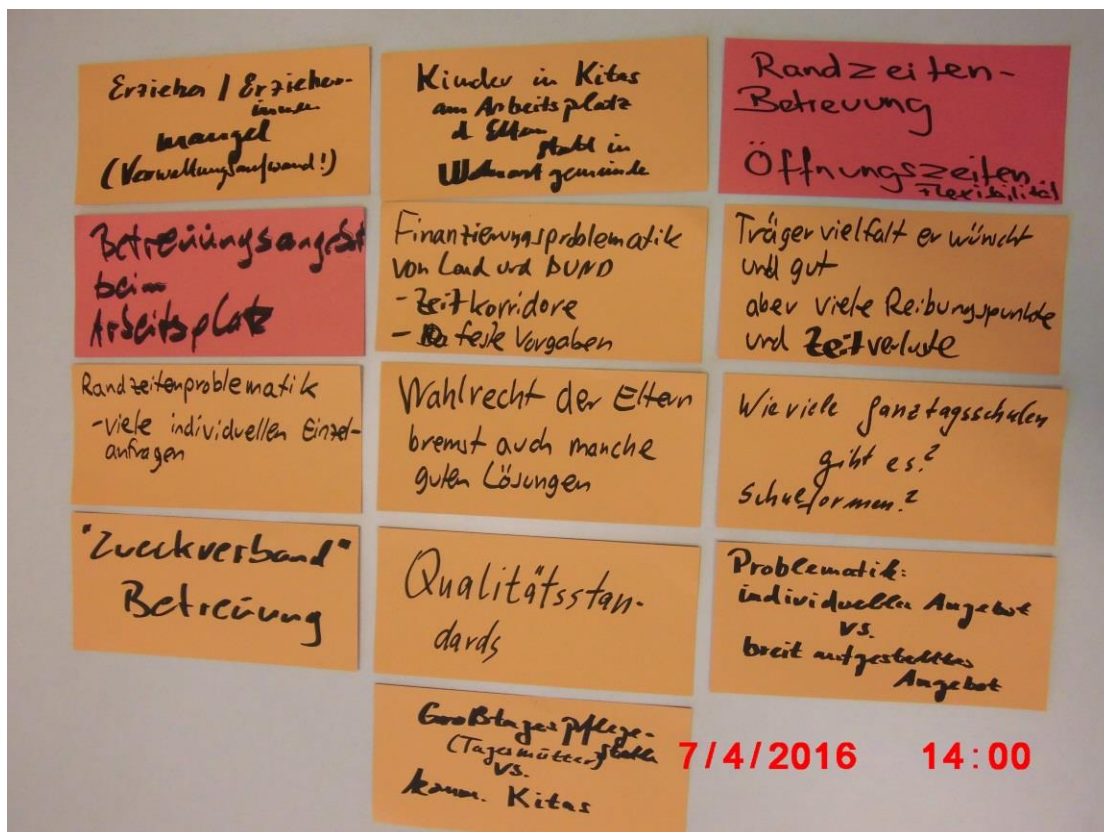 Erzieher / Erzieher-
innen
mangel
(Verwaltungsaufwand!)
Kinder in Kitas
am Arbeitsplatz
d Eltern
statt in
Wohnortgemeinde
Randzeiten-
Betreuung
Öffnungszeiten
Flexibilität
Betreuungsangebot
beim
Arbeitsplatz
Finanzierungsproblematik
von Land und BUND
- Zeitkorridore
- feste Vorgaben
Trägervielfalt erwünscht
und gut
aber viele Reibungspunkte
und Zeitverluste
Randzeitenproblematik
- viele individuellen Einzel-
anfragen
Wahlrecht der Eltern
bremst auch manche
guten Lösungen
Wie viele Ganztagsschulen
gibt es?
Schulformen?
"Zweckverband"
Betreuung
Qualitätsstan-
dards
Problematik:
individuelles Angebot
vs.
breit aufgestelltes
Angebot
Großtagespflege-
stellen
(Tagesmütter)
vs.
komm. Kitas
7/4/2016 14:00